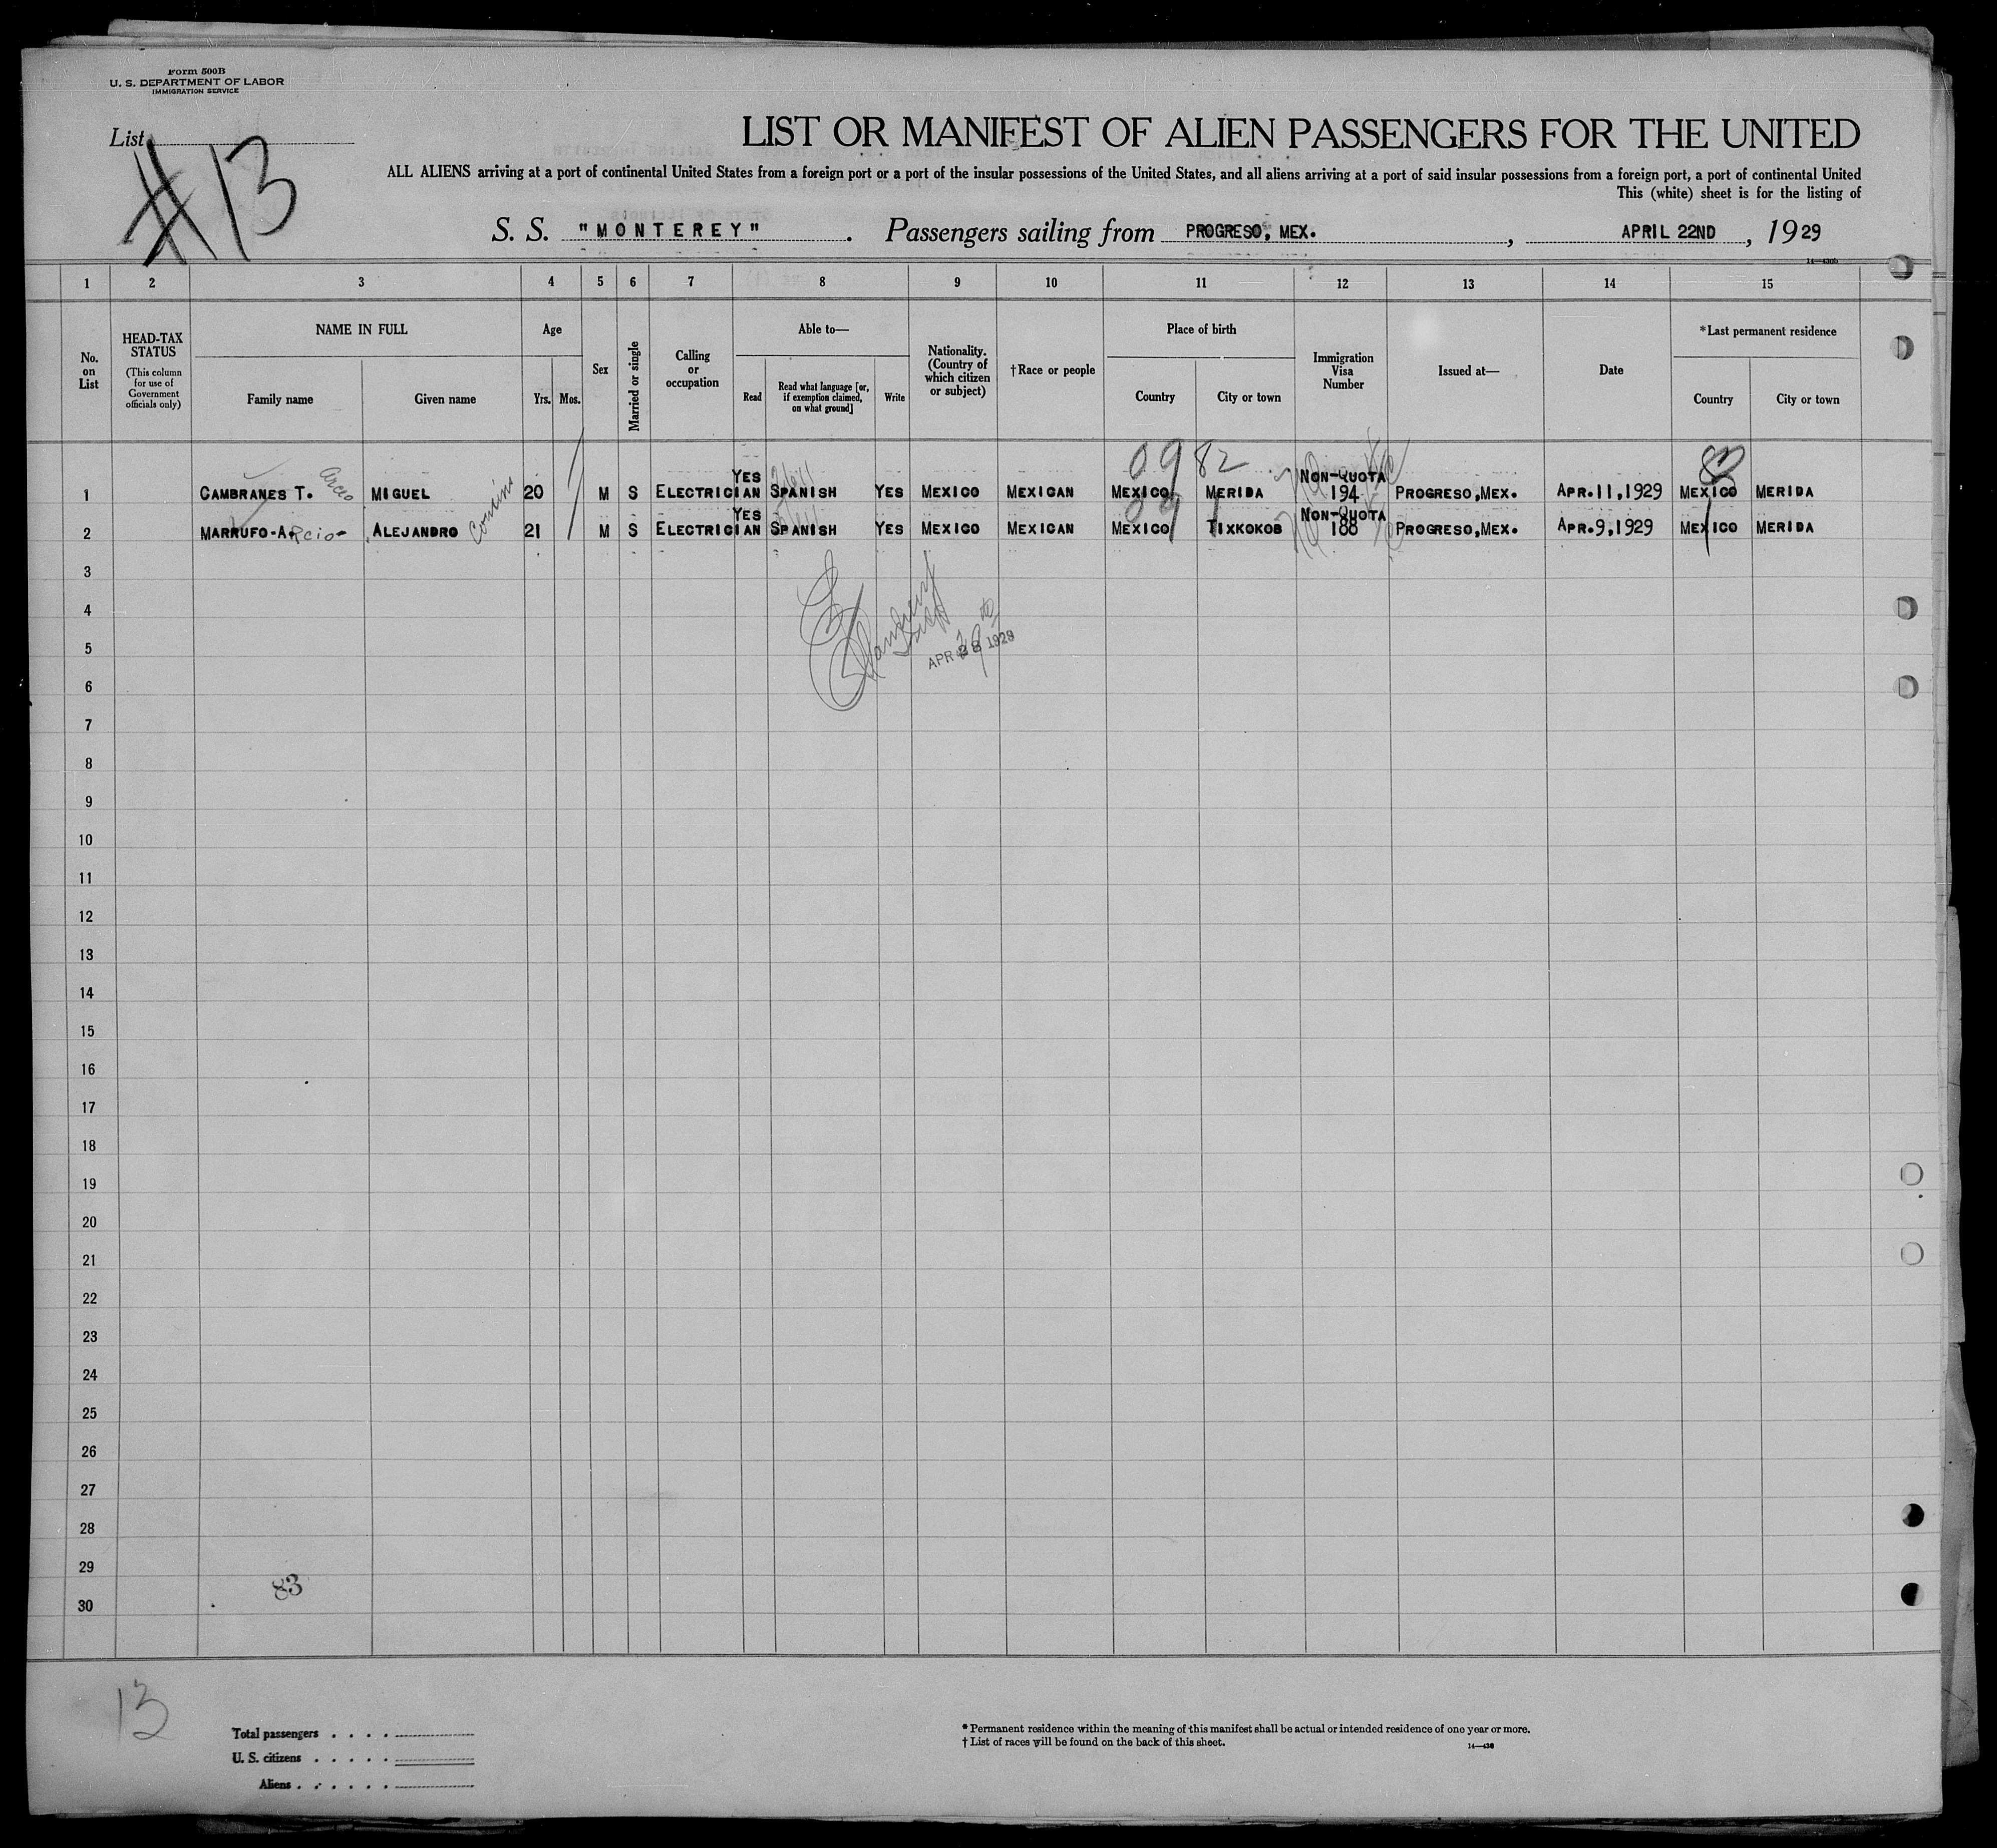 Form 500B
U. S. DEPARTMENT OF LABOR
IMMIGRATION SERVICE
List
#13
LIST OR MANIFEST OF ALIEN PASSENGERS FOR THE UNITED
ALL ALIENS arriving at a port of continental United States from a foreign port or a port of the insular possessions of the United States, and all aliens arriving at a port of said insular possessions from a foreign port, a port of continental United
This (white) sheet is for the listing of
S. S. "MONTEREY". Passengers sailing from PROGRESO, MEX., APRIL 22ND, 1929
14—430b
1 2 3 4 5 6 7 8 9 10 11 12 13 14 15
No. on List
HEAD-TAX STATUS (This column for use of Government officials only)
NAME IN FULL
Family name Given name
Age
Yrs. Mos.
Sex
Married or single
Calling or occupation
Able to—
Read
Read what language [or, if exemption claimed, on what ground]
Write
Nationality. (Country of which citizen or subject)
†Race or people
Place of birth
Country City or town
Immigration Visa Number
Issued at—
Date
*Last permanent residence
Country City or town
09 82
1 CAMBRANES T. MIGUEL 20 M S ELECTRICIAN YES SPANISH YES MEXICO MEXICAN MEXICO MERIDA NON-QUOTA 194 PROGRESO,MEX. APR.11,1929 MEXICO MERIDA
2 MARRUFO-A.rcio- ALEJANDRO 21 M S ELECTRICIAN YES SPANISH YES MEXICO MEXICAN MEXICO TIXKOKOB NON-QUOTA 188 PROGRESO,MEX. APR.9,1929 MEXICO MERIDA
3
4
5
APR 1929
6
7
8
9
10
11
12
13
14
15
16
17
18
19
20
21
22
23
24
25
26
27
28
29
83
30
13
Total passengers
U. S. citizens
Aliens
*Permanent residence within the meaning of this manifest shall be actual or intended residence of one year or more.
†List of races will be found on the back of this sheet.
14—430